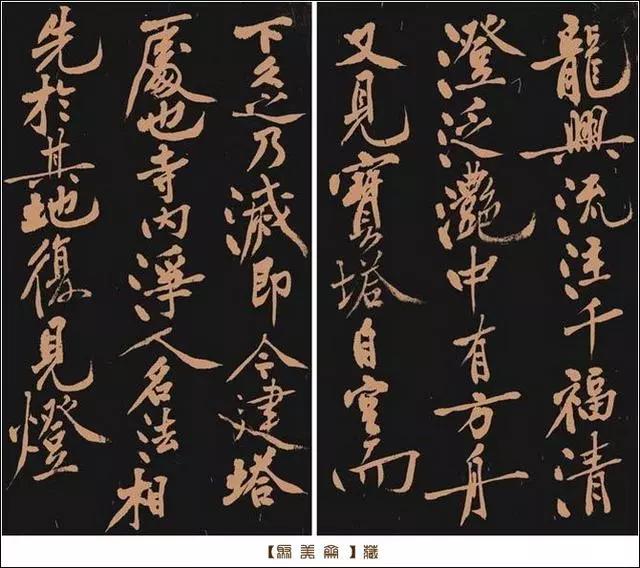 龍興流注千福清
澄泛灧中有方舟
又見寶塔自空而
下久之乃滅即今建塔
處也寺內淨人名法相
先於其地復見燈
【美】藏